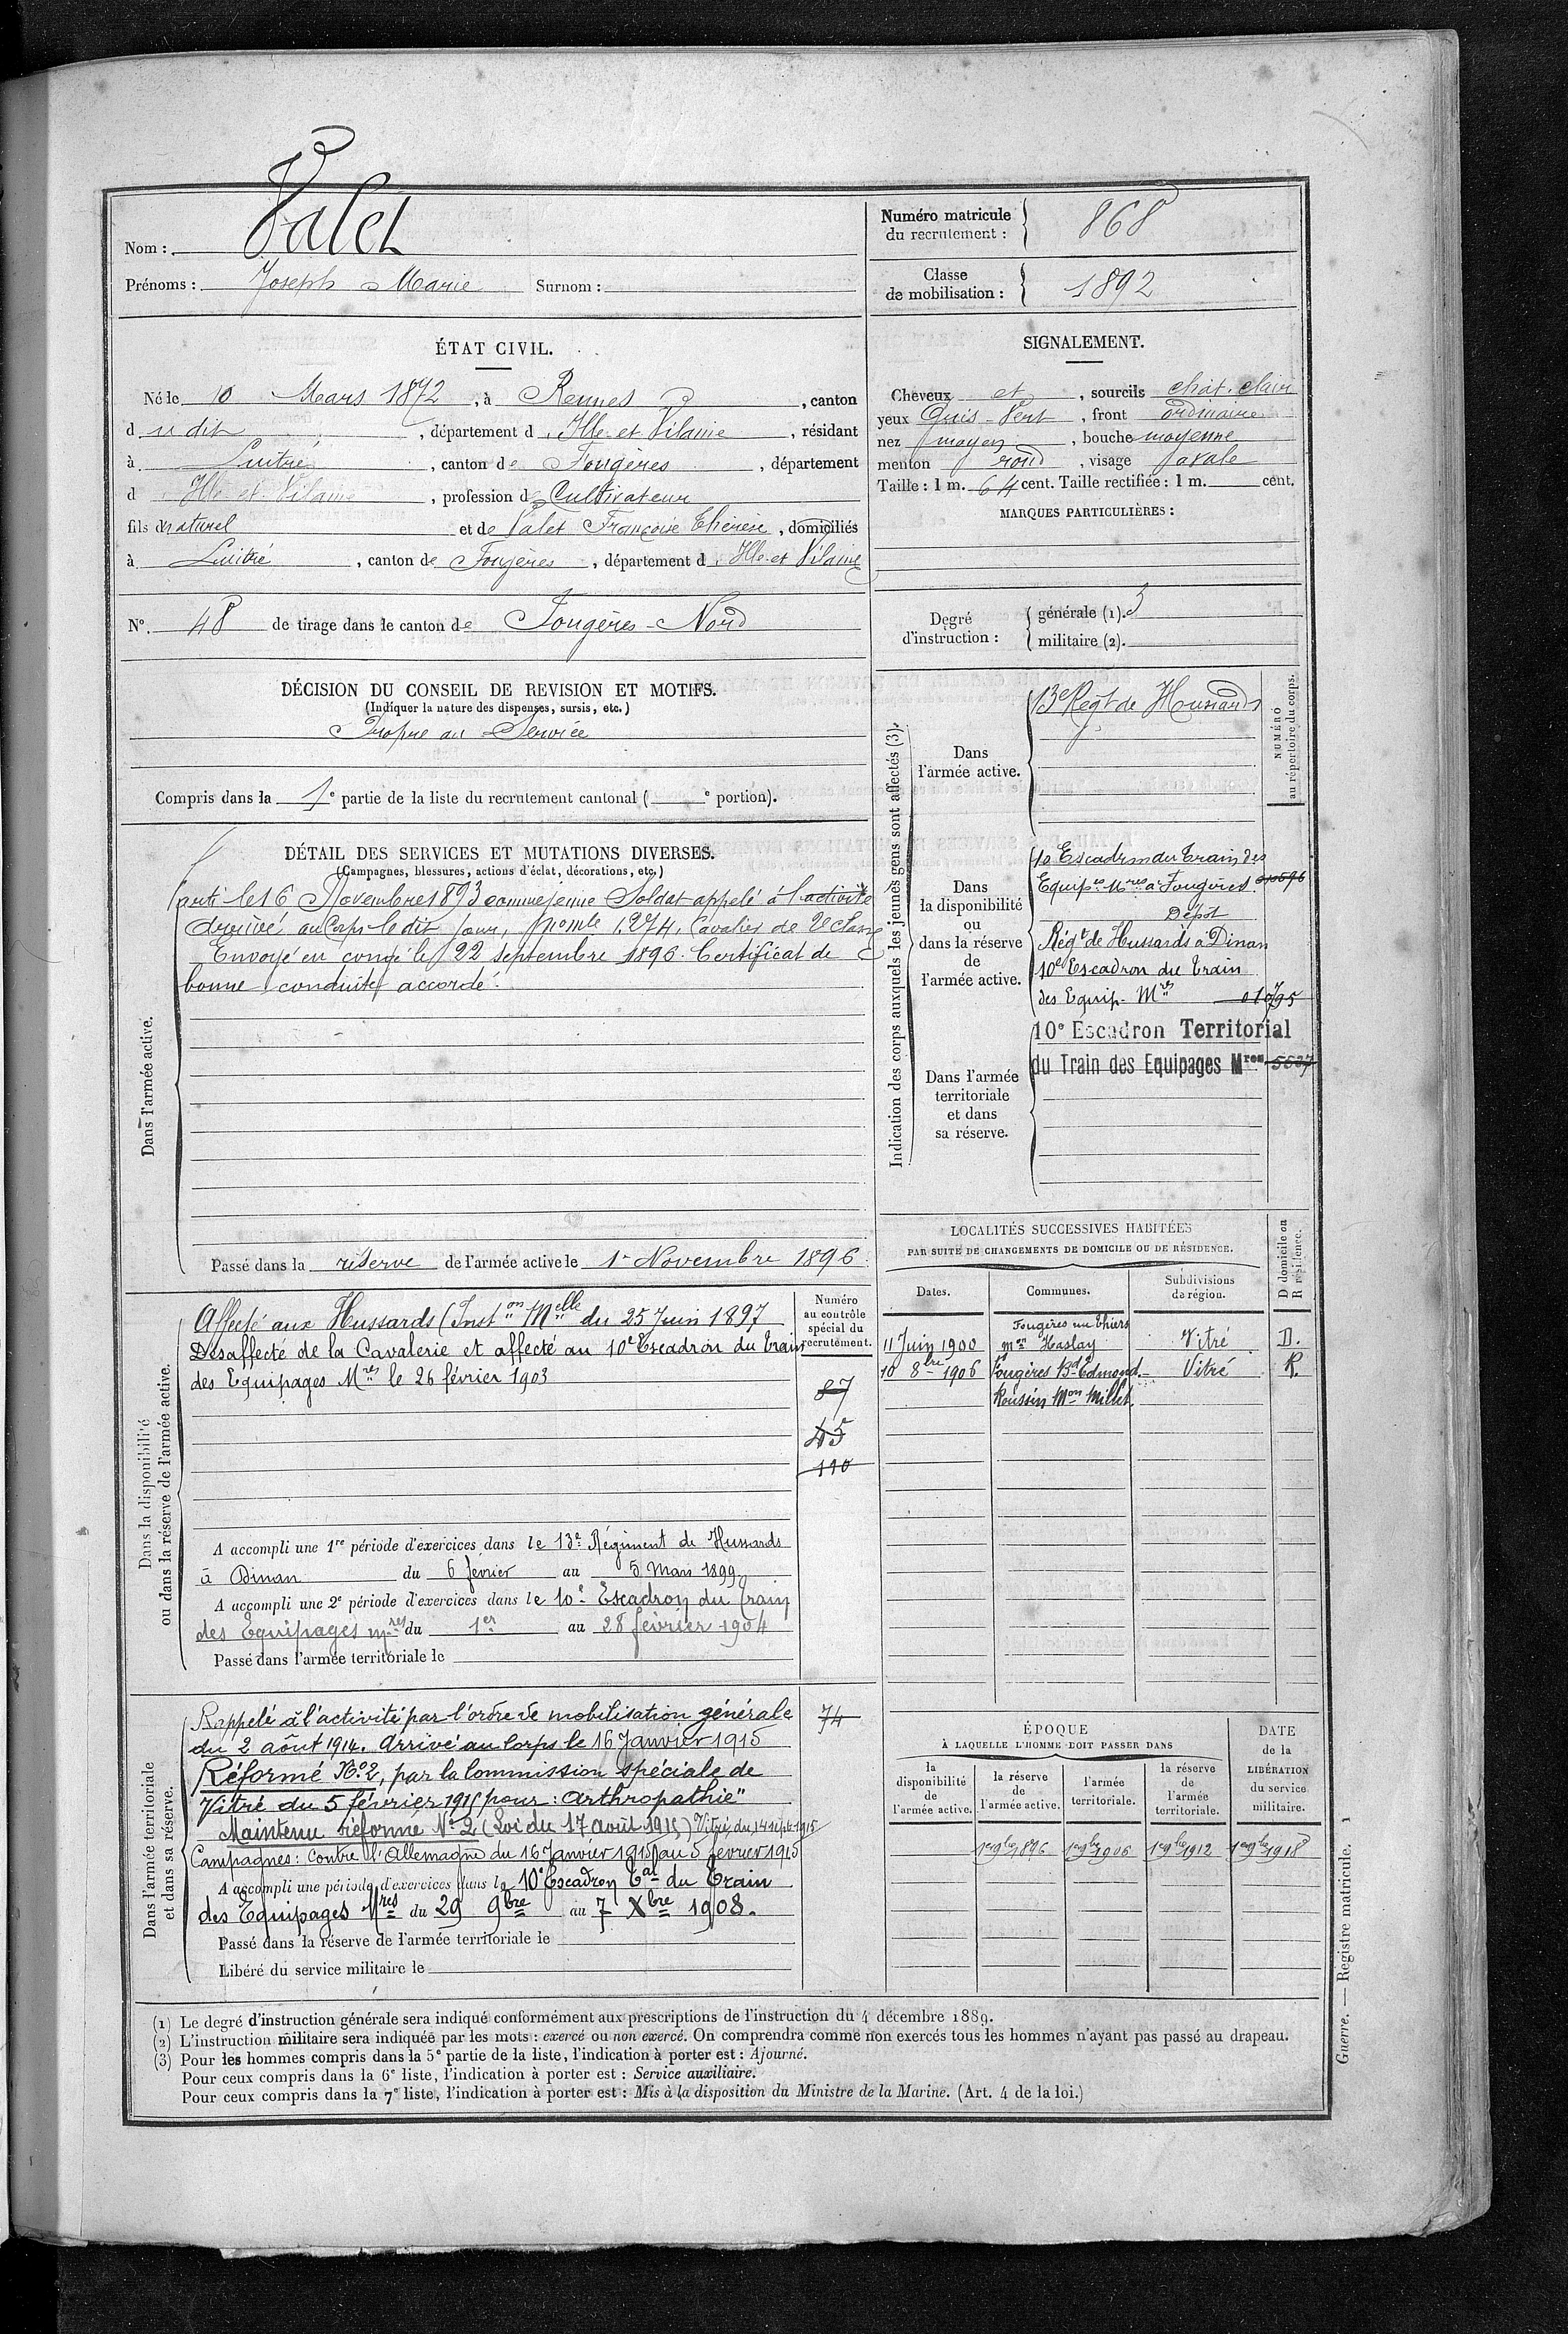 Nom : Valet
Prénoms : Joseph Marie Surnom :
Numéro matricule du recrutement : 868
Classe de mobilisation : 1892
ÉTAT CIVIL.
Né le 10 Mars 1872, à Rennes, canton
d u dit, département d'Ille et Vilaine, résidant
à Luitré, canton de Fougères, département
d'Ille et Vilaine, profession de Cultivateur
fils naturel et de Valet Françoise Thérèse, domiciliés
à Luitré, canton de Fougères, département d'Ille et Vilaine
N°. 48 de tirage dans le canton de Fougères-Nord
SIGNALEMENT.
Cheveux et, sourcils chat. clair
yeux Gris-Vert, front ordinaire
nez moyen, bouche moyenne
menton rond, visage ovale
Taille : 1 m. 64 cent. Taille rectifiée : 1 m. cent.
MARQUES PARTICULIÈRES :
Degré d'instruction : générale (1). 3
militaire (2).
DÉCISION DU CONSEIL DE REVISION ET MOTIFS.
(Indiquer la nature des dispenses, sursis, etc.)
Propre au Service
Compris dans la 1e partie de la liste du recrutement cantonal ( e portion).
DÉTAIL DES SERVICES ET MUTATIONS DIVERSES.
(Campagnes, blessures, actions d'éclat, décorations, etc.)
Dans l'armée active.
Parti le 16 Novembre 1893 comme jeune Soldat appelé à l'activité
Arrivé au Corps le dit jour, n° mle 1274, Cavalier de 2e classe
Envoyé en congé le 22 septembre 1896. Certificat de
bonne conduite accordé.
Passé dans la réserve de l'armée active le 1er Novembre 1896
Indication des corps auxquels les jeunes gens sont affectés (3).
NUMÉRO au répertoire du corps.
Dans l'armée active.
13e Régt de Hussards
Dans la disponibilité ou dans la réserve de l'armée active.
10 Escadron du Train des
Equipes Mres à Fougères
Dépôt
Régt de Hussards à Dinan
10e Escadron du Train
des Equip. Mres 01095
Dans l'armée territoriale et dans sa réserve.
10e Escadron Territorial
du Train des Equipages Mres 5537
LOCALITÉS SUCCESSIVES HABITÉES
PAR SUITE DE CHANGEMENTS DE DOMICILE OU DE RÉSIDENCE.
Dates. Communes. Subdivisions de région. D domicile ou R résidence.
11 Juin 1900 Fougères rue Thiers mon Haslay Vitré D.
10 8bre 1906 Fougères Bd Edmond Roussin Mon Millet. Vitré R.
Dans la disponibilité ou dans la réserve de l'armée active.
Numéro au contrôle spécial du recrutement.
Affecté aux Hussards (Inston Melle du 25 Juin 1897
Désaffecté de la Cavalerie et affecté au 10e Escadron du Train
des Equipages Mres le 26 février 1903
87
45
110
A accompli une 1re période d'exercices dans le 13e Régiment de Hussards
à Dinan du 6 février au 5 Mars 1899
A accompli une 2e période d'exercices dans le 10e Escadron du Train
des Equipages mres du 1er au 28 février 1904
Passé dans l'armée territoriale le
Dans l'armée territoriale et dans sa réserve.
Rappelé à l'activité par l'ordre de mobilisation générale 74
du 2 août 1914. Arrivé au Corps le 16 Janvier 1915
Réformé No. 2, par la Commission spéciale de
Vitré du 5 février 1915 pour : "Arthropathie"
Maintenu réformé No 2 (Loi du 17 août 1915) Vitré, du 14 sept 1915
Campagnes : Contre l'Allemagne du 16 Janvier 1915 au 5 février 1915
A accompli une période d'exercices dans le 10e Escadron Tal du Train
des Equipages Mres du 29 9bre au 7 Xbre 1908.
Passé dans la réserve de l'armée territoriale le
Libéré du service militaire le
ÉPOQUE
À LAQUELLE L'HOMME DOIT PASSER DANS
la disponibilité de l'armée active. la réserve de l'armée active. l'armée territoriale. la réserve de l'armée territoriale. DATE de la LIBÉRATION du service militaire.
1er 9bre 1896 1er 9bre 1906 1er 9bre 1912 1er 9bre 1918
(1) Le degré d'instruction générale sera indiqué conformément aux prescriptions de l'instruction du 4 décembre 1889.
(2) L'instruction militaire sera indiquée par les mots : exercé ou non exercé. On comprendra comme non exercés tous les hommes n'ayant pas passé au drapeau.
(3) Pour les hommes compris dans la 5e partie de la liste, l'indication à porter est : Ajourné.
Pour ceux compris dans la 6e liste, l'indication à porter est : Service auxiliaire.
Pour ceux compris dans la 7e liste, l'indication à porter est : Mis à la disposition du Ministre de la Marine. (Art. 4 de la loi.)
Guerre. — Registre matricule. 1